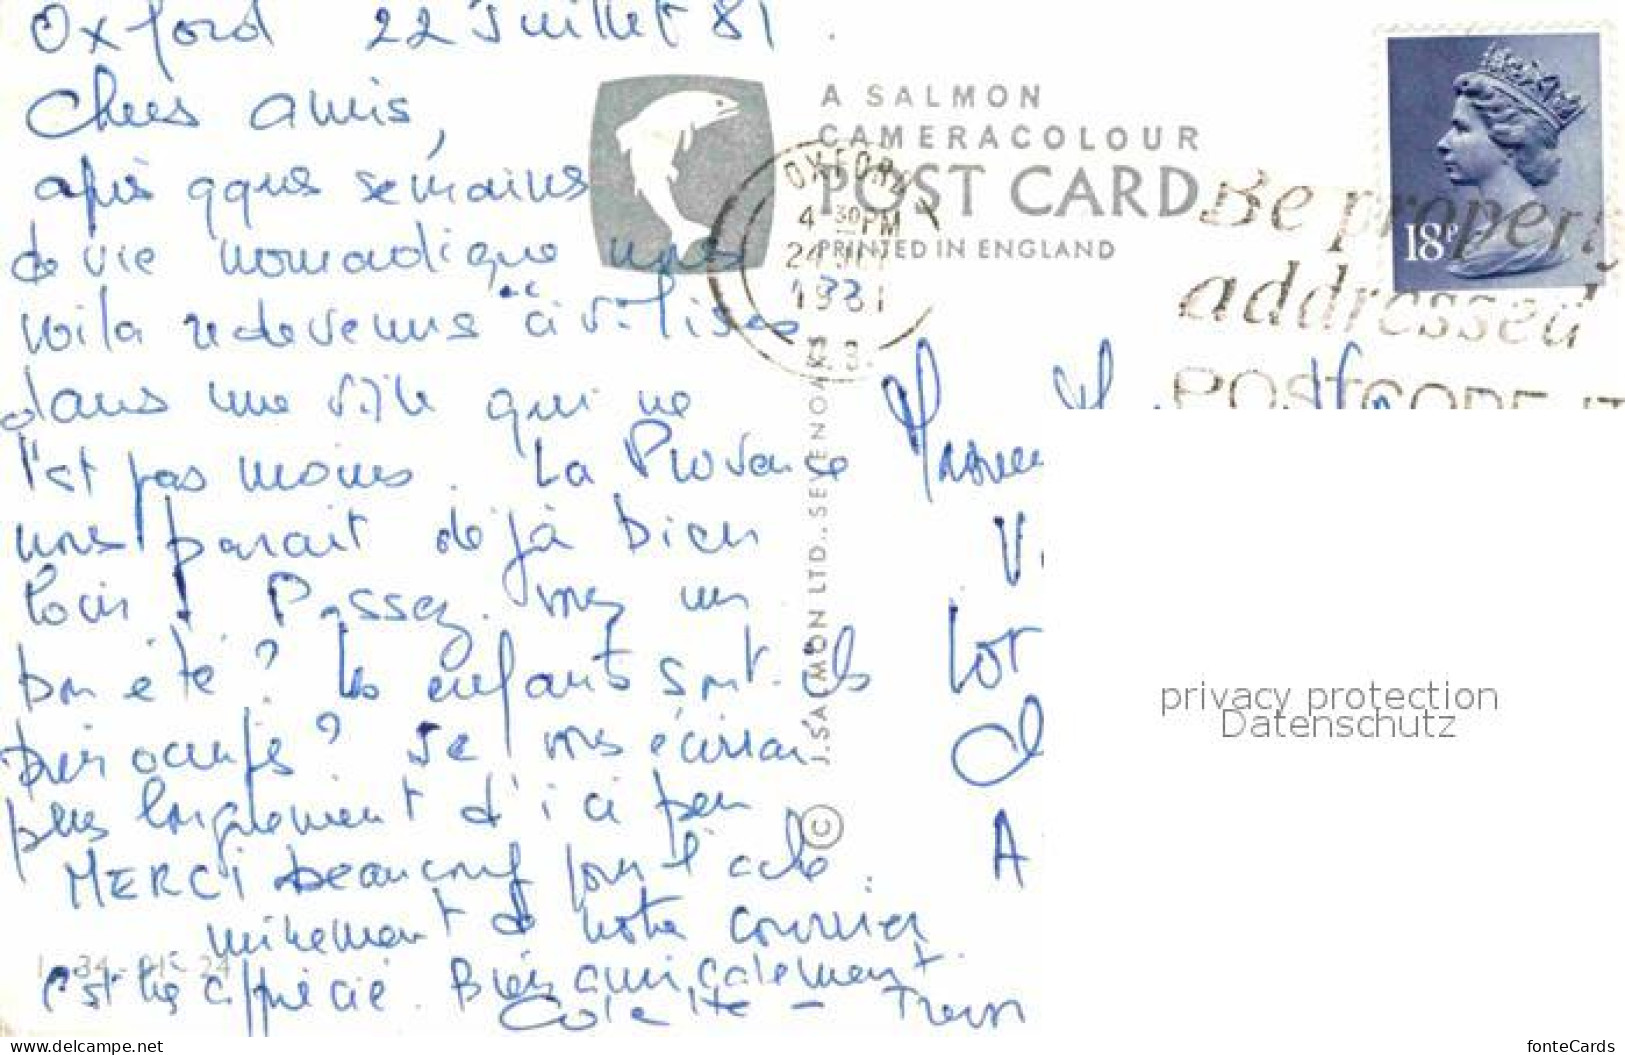 Oxford 22 Juillet 81.
Chers amis,
après qques semaines
de vie nomadique nous
voilà redevenus civilisés
dans une ville qui ne
l'est pas moins. La Provence
nous parait déjà bien
loin ! Passez vous un
bon été ? Les enfants sont-ils
bien occupés ? Je vous écrirai
plus longuement d'ici peu
MERCI beaucoup pour l'ache-
minement de notre courrier
c'est très apprécié. Bien amicalement.
Colette - Trevor
A SALMON
CAMERACOLOUR
POST CARD
PRINTED IN ENGLAND
OXFORD
4 30 PM
24 JLY
1981
Be properly
addressed
POSTCODE IT
18P
J. SALMON LTD., SEVENOAKS
©
V
Lor
A
privacy protection
Datenschutz
www.delcampe.net
fonteCards